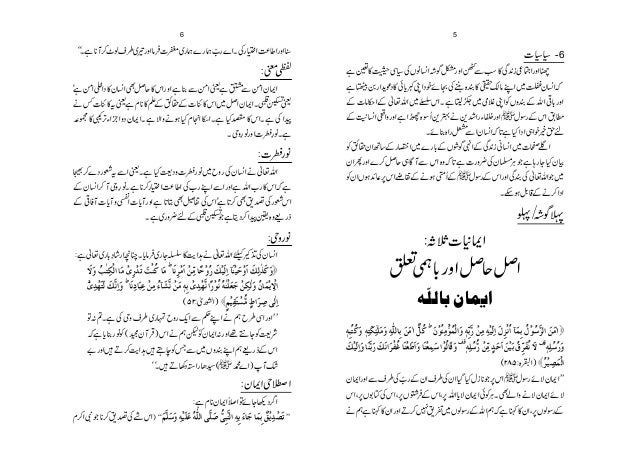 5
6- سیاسیات
چھٹا اور اجتماعی زندگی کا سب سے کٹھن اور مشکل گوشہ انسانوں کی سیاسی حیثیت کا تعین ہے
کہ انسان غفلت میں اپنے مالک حقیقی کا بندہ بننے کی بجائے خود اپنی کبریائی کا دعویدار بن بیٹھتا ہے
اور باقی اللہ کے بندوں کو اپنی غلامی میں جکڑ لیتا ہے۔ اس سلسلے میں اللہ تعالیٰ کے احکامات کے
لئے رسول ﷺ اور خلفاء راشدین نے بہترین اُسوہ چھوڑا ہے اور واقعی انسانیت کے
لئے حق خیر خواہی ادا کیا ہے تاکہ انسان اسے مشعل راہ بنائے۔
اگلے صفحات میں انسانی زندگی کے انہی گوشوں کے بارے میں اختصار کے ساتھ ان حقائق کو
بیان کیا جا رہا ہے جو ہر مسلمان کی ضرورت ہے تاکہ وہ اس سے آگاہی حاصل کرے اور پھر ان
میں جو اللہ تعالیٰ کی بندگی اور اس کے رسول ﷺ کے اُمتی ہونے کے تقاضے اس پر عائد ہوں ان کو
ادا کرنے کے قابل ہو سکے۔
پہلا گوشہ / پہلو
ایمانیات ثلاثہ:
اصل حاصل اور باہمی تعلق
ایمان باللہ
﴿اٰمَنَ الرَّسُوْلُ بِمَا اُنْزِلَ اِلَيْهِ مِنْ رَّبِّهٖ وَالْمُؤْمِنُوْنَ ؕ كُلٌّ اٰمَنَ بِاللّٰهِ وَمَلٰٓئِكَتِهٖ وَكُتُبِهٖ
وَرُسُلِهٖ ۫ لَا نُفَرِّقُ بَيْنَ اَحَدٍ مِّنْ رُّسُلِهٖ ۫ وَقَالُوْا سَمِعْنَا وَاَطَعْنَا غُفْرَانَكَ رَبَّنَا وَاِلَيْكَ
الْمَصِيْرُ﴾ (البقرہ: ۲۸۵)
”ایمان لائے رسول ﷺ اس پر جو نازل کیا گیا ان کی طرف ان کے رب کی طرف سے اور ایمان
لائے ایمان لانے والے بھی۔ ہر کوئی ایمان لایا اللہ پر، اس کے فرشتوں پر، اس کی کتابوں پر، اس
کے رسولوں پر، ان کا کہنا ہے کہ ہم اللہ کے رسولوں میں تفریق نہیں کرتے اور ان کا کہنا ہے کہ ہم نے
6
سنا اور اطاعت اختیار کی۔ اے ربّ ہمارے ہماری مغفرت فرما اور تیری طرف لوٹ کر آنا ہے۔“
لفظی معنیٰ:
ایمان امن سے مشتق ہے یعنی امن سے بنا ہے اور اس کا حاصل بھی انسان کا داخلی امن ہے
یعنی تسکین قلبی۔ ایمان اصل میں اس کائنات کے حقائق کے علم کا نام ہے یعنی یہ کائنات کس نے
پیدا کی ہے۔ اس کا مقصد کیا ہے۔ اسکا انجام کیا ہونے والا ہے۔ ایمان دو اجزائے ترکیبی کا مجموعہ
ہے۔ نورِ فطرت اور نورِ وحی۔
نورِ فطرت:
اللہ تعالیٰ نے انسان کی روح میں نورِ فطرت ودیعت کیا ہے۔ یعنی اسے یہ شعور دے کر بھیجا
ہے کہ اس کا رب اللہ ہے اور اسے اپنے رب کی اطاعت اختیار کرنا ہے۔ نورِ وحی آ کر انسان کے
اس شعور کی تصدیق بھی کرتا ہے اس کی تفاصیل بھی بتاتا ہے اور آیات اَنفُسی و آیات آفاقی کے
ذریعے وہ یقین پیدا کر دیتا ہے جو تسکین قلبی کے لئے ضروری ہے۔
نورِ وحی:
انسان کی تذکیر کیلئے اللہ تعالیٰ نے ہدایت کا سلسلہ جاری فرمایا۔ چنانچہ ارشاد باری تعالیٰ ہے:
﴿وَكَذٰلِكَ اَوْحَيْنَاۤ اِلَيْكَ رُوْحًا مِّنْ اَمْرِنَا ؕ مَا كُنْتَ تَدْرِىْ مَا الْكِتٰبُ وَلَا
الْاِيْمَانُ وَلٰكِنْ جَعَلْنٰهُ نُوْرًا نَّهْدِىْ بِهٖ مَنْ نَّشَآءُ مِنْ عِبَادِنَا ؕ وَاِنَّكَ لَتَهْدِىْۤ
اِلٰى صِرَاطٍ مُّسْتَقِيْمٍ﴾ (الشوریٰ: ۵۲)
”اور اسی طرح ہم نے اپنے حکم سے ایک روح تمہاری طرف وحی کی ہے۔ تم نہ تو
شریعت کو جانتے تھے اور نہ ایمان کو لیکن ہم نے اس (قرآن مجید) کو نور بنایا ہے کہ
اس کے ذریعے ہم اپنے بندوں میں سے جس کو چاہتے ہیں ہدایت کرتے ہیں اور بے
شک آپ (اے محمد ﷺ) سیدھا راستہ دکھاتے ہیں۔“
اصطلاحی ایمان:
اگر دیکھا جائے تو اصلاً ایمان نام ہے:
”تَصْدِيْقٌ بِمَا جَاءَ بِهِ النَّبِىُّ صَلَّى اللّٰهُ عَلَيْهِ وَسَلَّمَ“ (اس شے کی تصدیق کرنا جو نبی اکرم